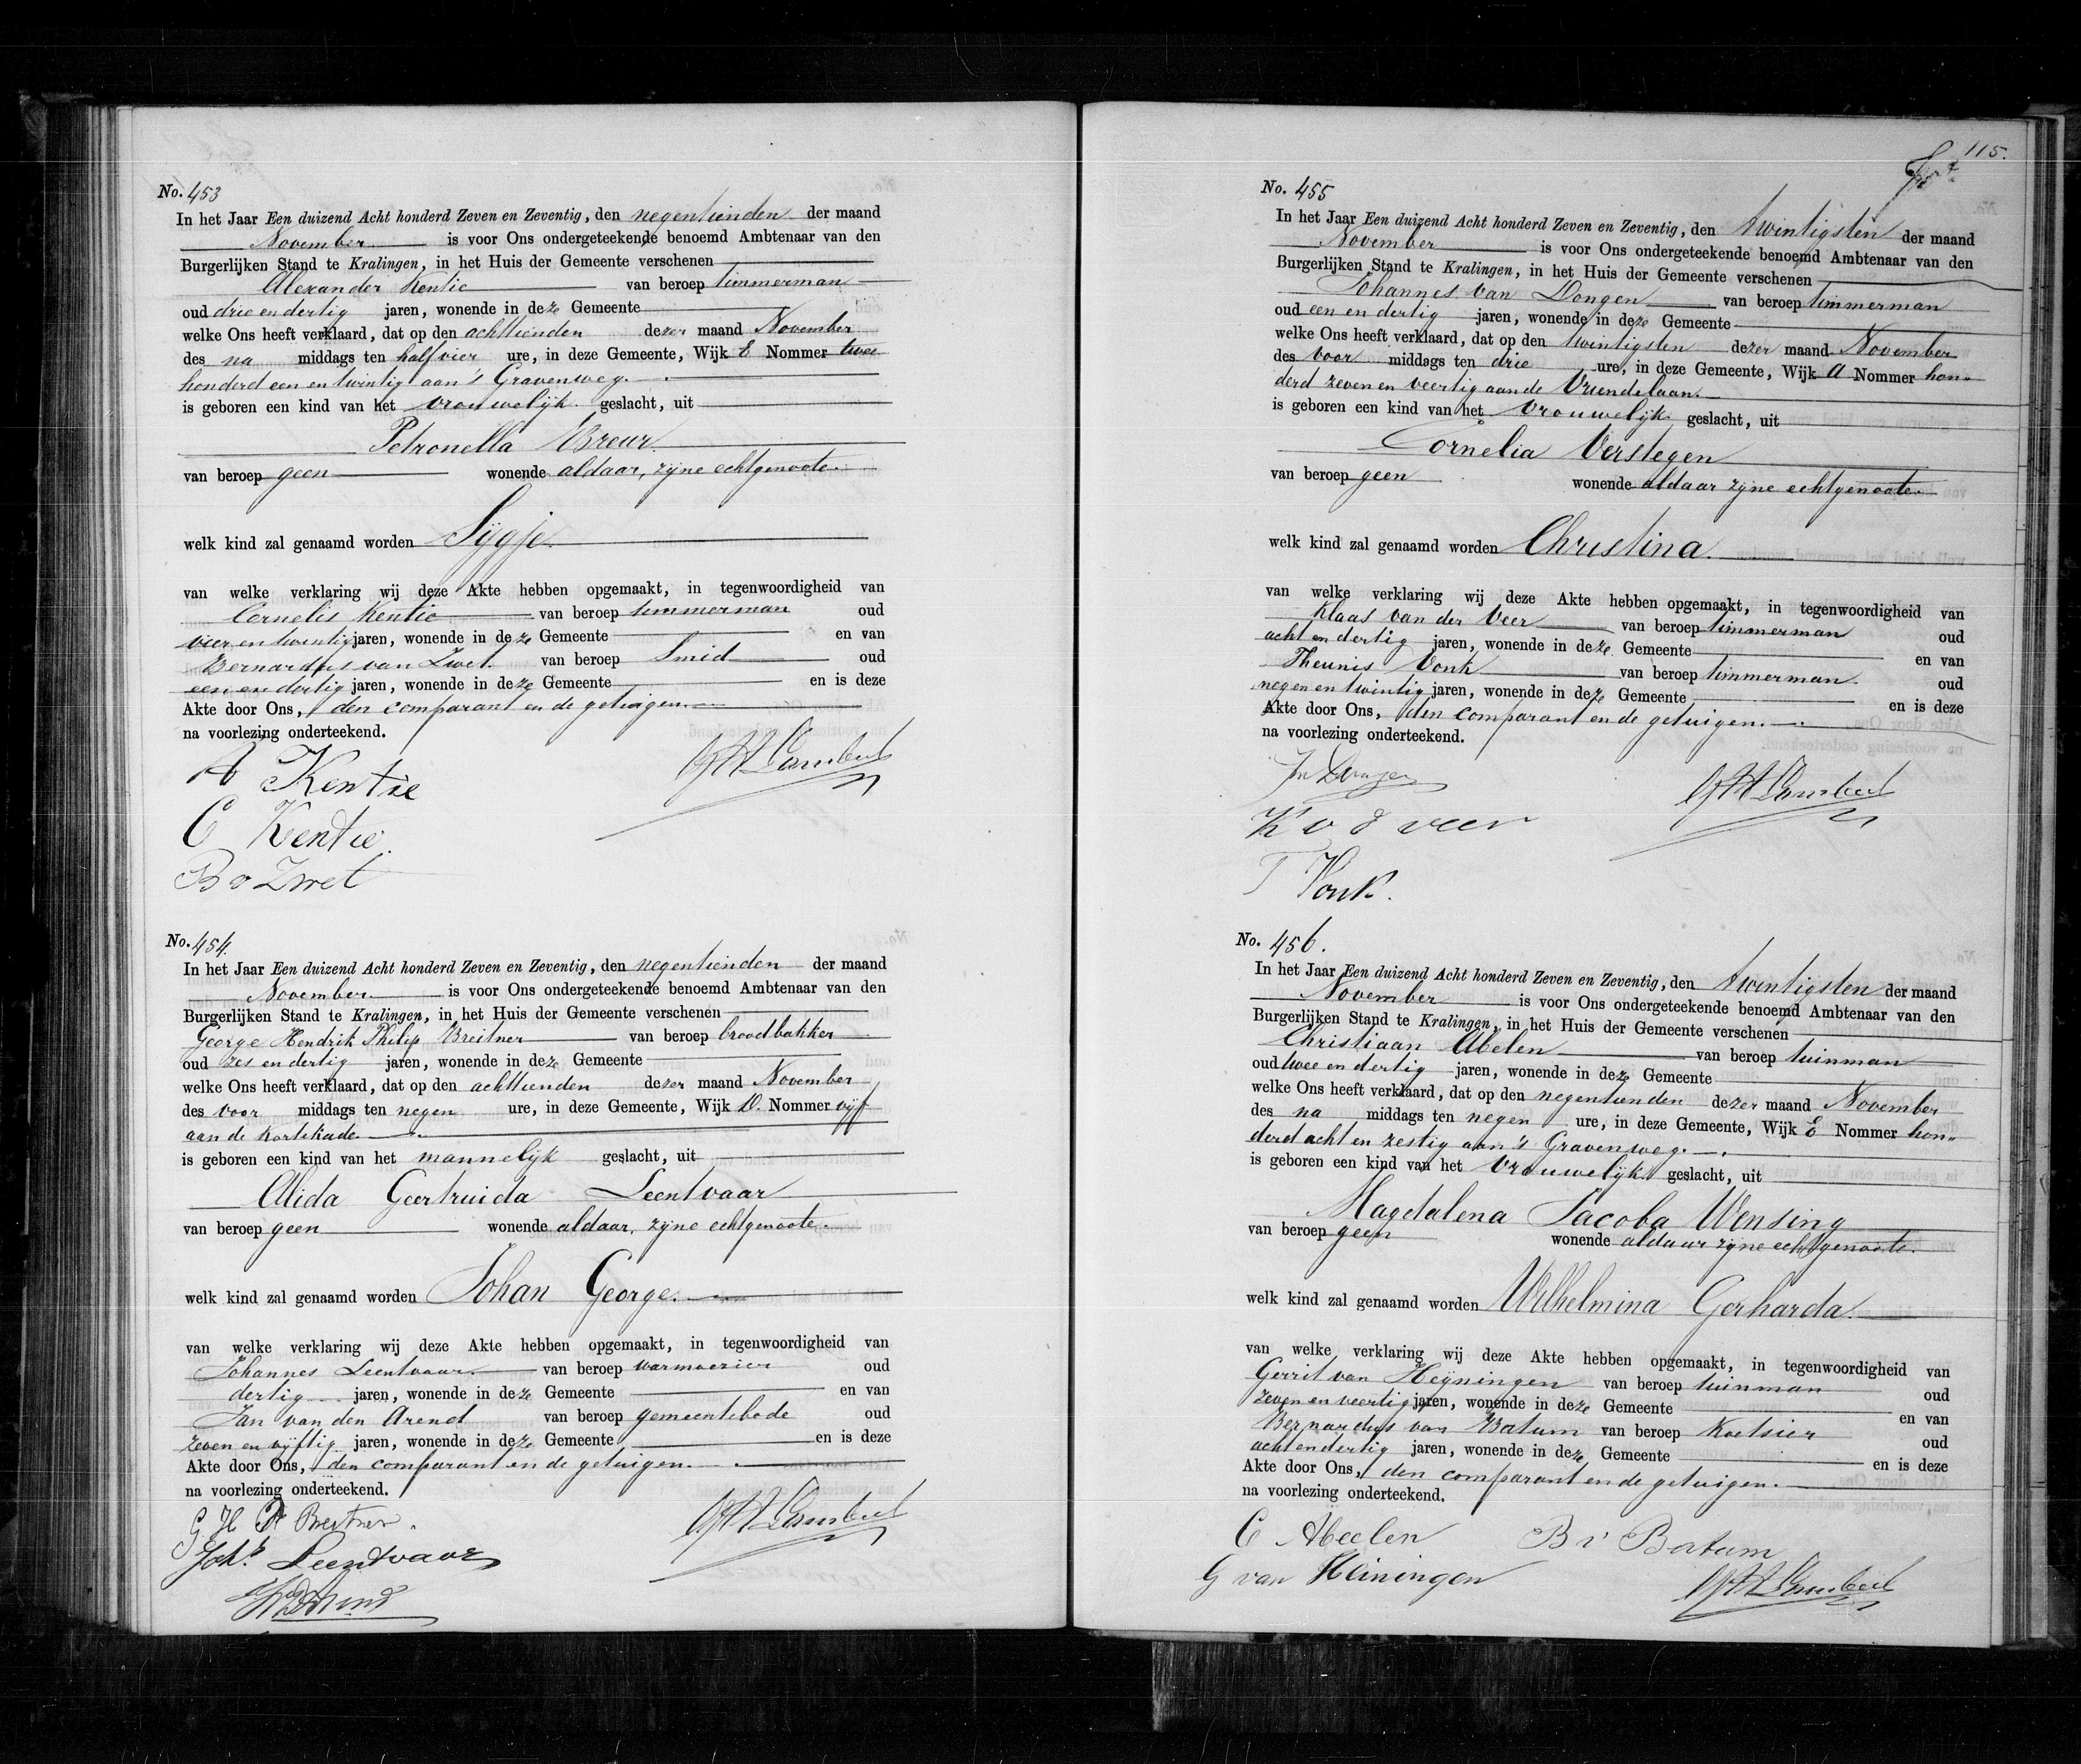 No. 453
In het Jaar Een duizend Acht honderd Zeven en Zeventig, den negentienden der maand
November is voor Ons ondergeteekende benoemd Ambtenaar van den
Burgerlijken Stand te Kralingen, in het Huis der Gemeente verschenen
Alexander Kentie van beroep timmerman
oud drie en dertig jaren, wonende in deze Gemeente
welke Ons heeft verklaard, dat op den achttienden dezer maand November
des na middags ten half vier ure, in deze Gemeente, Wijk E Nommer twee
honderd een en twintig aan 's Gravenweg.
is geboren een kind van het vrouwelijk geslacht, uit
Petronella Breur
van beroep geen wonende aldaar, zijne echtgenoote.
welk kind zal genaamd worden Sijgje.
van welke verklaring wij deze Akte hebben opgemaakt, in tegenwoordigheid van
Cornelis Kentie van beroep timmerman oud
vier en twintig jaren, wonende in deze Gemeente en van
Bernardus van Zwet van beroep Smid oud
een en dertig jaren, wonende in deze Gemeente en is deze
Akte door Ons, den comparant en de getuigen.
na voorlezing onderteekend.
A Kentie
C Kentie.
B v Zwet
No. 454.
In het Jaar Een duizend Acht honderd Zeven en Zeventig, den negentienden der maand
November is voor Ons ondergeteekende benoemd Ambtenaar van den
Burgerlijken Stand te Kralingen, in het Huis der Gemeente verschenen
George Hendrik Philip Breitner van beroep broodbakker
oud zes en dertig jaren, wonende in deze Gemeente
welke Ons heeft verklaard, dat op den achttienden dezer maand November
des voor middags ten negen ure, in deze Gemeente, Wijk D. Nommer vijf
aan de Kortekade
is geboren een kind van het mannelijk geslacht, uit
Alida Geertruida Leentvaar
van beroep geen wonende aldaar, zijne echtgenoote.
welk kind zal genaamd worden Johan George.
van welke verklaring wij deze Akte hebben opgemaakt, in tegenwoordigheid van
Johannes Leentvaar van beroep warmoezier oud
dertig jaren, wonende in deze Gemeente en van
Jan van den Arend van beroep gemeentebode oud
zeven en vijftig jaren, wonende in deze Gemeente en is deze
Akte door Ons, den comparant en de getuigen.
na voorlezing onderteekend.
G. H. P. Breitner.
Joh.s Leentvaar
115.
No. 455
In het Jaar Een duizend Acht honderd Zeven en Zeventig, den twintigsten der maand
November is voor Ons ondergeteekende benoemd Ambtenaar van den
Burgerlijken Stand te Kralingen, in het Huis der Gemeente verschenen
Johannes van Dongen van beroep timmerman
oud een en dertig jaren, wonende in deze Gemeente
welke Ons heeft verklaard, dat op den twintigsten dezer maand November
des voor middags ten drie ure, in deze Gemeente, Wijk A Nommer hon„
derd zeven en veertig aan de Vriendelaan.
is geboren een kind van het vrouwelijk geslacht, uit
Cornelia Verstegen
van beroep geen wonende aldaar zijne echtgenoote.
welk kind zal genaamd worden Christina.
van welke verklaring wij deze Akte hebben opgemaakt, in tegenwoordigheid van
Klaas van der Veer van beroep timmerman oud
acht en dertig jaren, wonende in deze Gemeente en van
Theunis Vonk van beroep timmerman oud
negen en twintig jaren, wonende in deze Gemeente en is deze
Akte door Ons, den comparant en de getuigen.
na voorlezing onderteekend.
K v d veer
T Vonk.
No. 456.
In het Jaar Een duizend Acht honderd Zeven en Zeventig, den twintigsten der maand
November is voor Ons ondergeteekende benoemd Ambtenaar van den
Burgerlijken Stand te Kralingen, in het Huis der Gemeente verschenen
Christiaan Abelen van beroep tuinman
oud twee en dertig jaren, wonende in deze Gemeente
welke Ons heeft verklaard, dat op den negentienden dezer maand November
des na middags ten negen ure, in deze Gemeente, Wijk E Nommer hon„
derd acht en zestig aan 's Gravenweg.
is geboren een kind van het vrouwelijk geslacht, uit
Magdalena Jacoba Wensing
van beroep geen wonende aldaar zijne echtgenoote.
welk kind zal genaamd worden Wilhelmina Gerharda.
van welke verklaring wij deze Akte hebben opgemaakt, in tegenwoordigheid van
Gerrit van Heijningen van beroep tuinman oud
zeven en veertig jaren, wonende in deze Gemeente en van
Bernardus van Batum van beroep Koetsier oud
acht en dertig jaren, wonende in deze Gemeente en is deze
Akte door Ons, den comparant en de getuigen.
na voorlezing onderteekend.
C Abeelen B v Batum
G van Heiningen